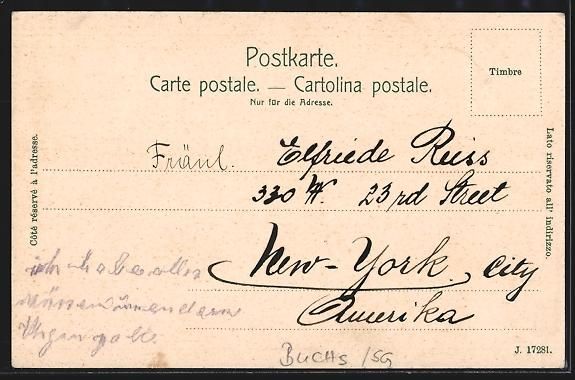 Postkarte.
Carte postale. — Cartolina postale.
Nur für die Adresse.
Timbre
Côté réservé à l'adresse.
Lato riservato all' indirizzo.
Fräul. Elfriede Reiss
330 W. 23rd Street
New-York City
Amerika
ich habe alles
BUCHS /SG
J. 17281.